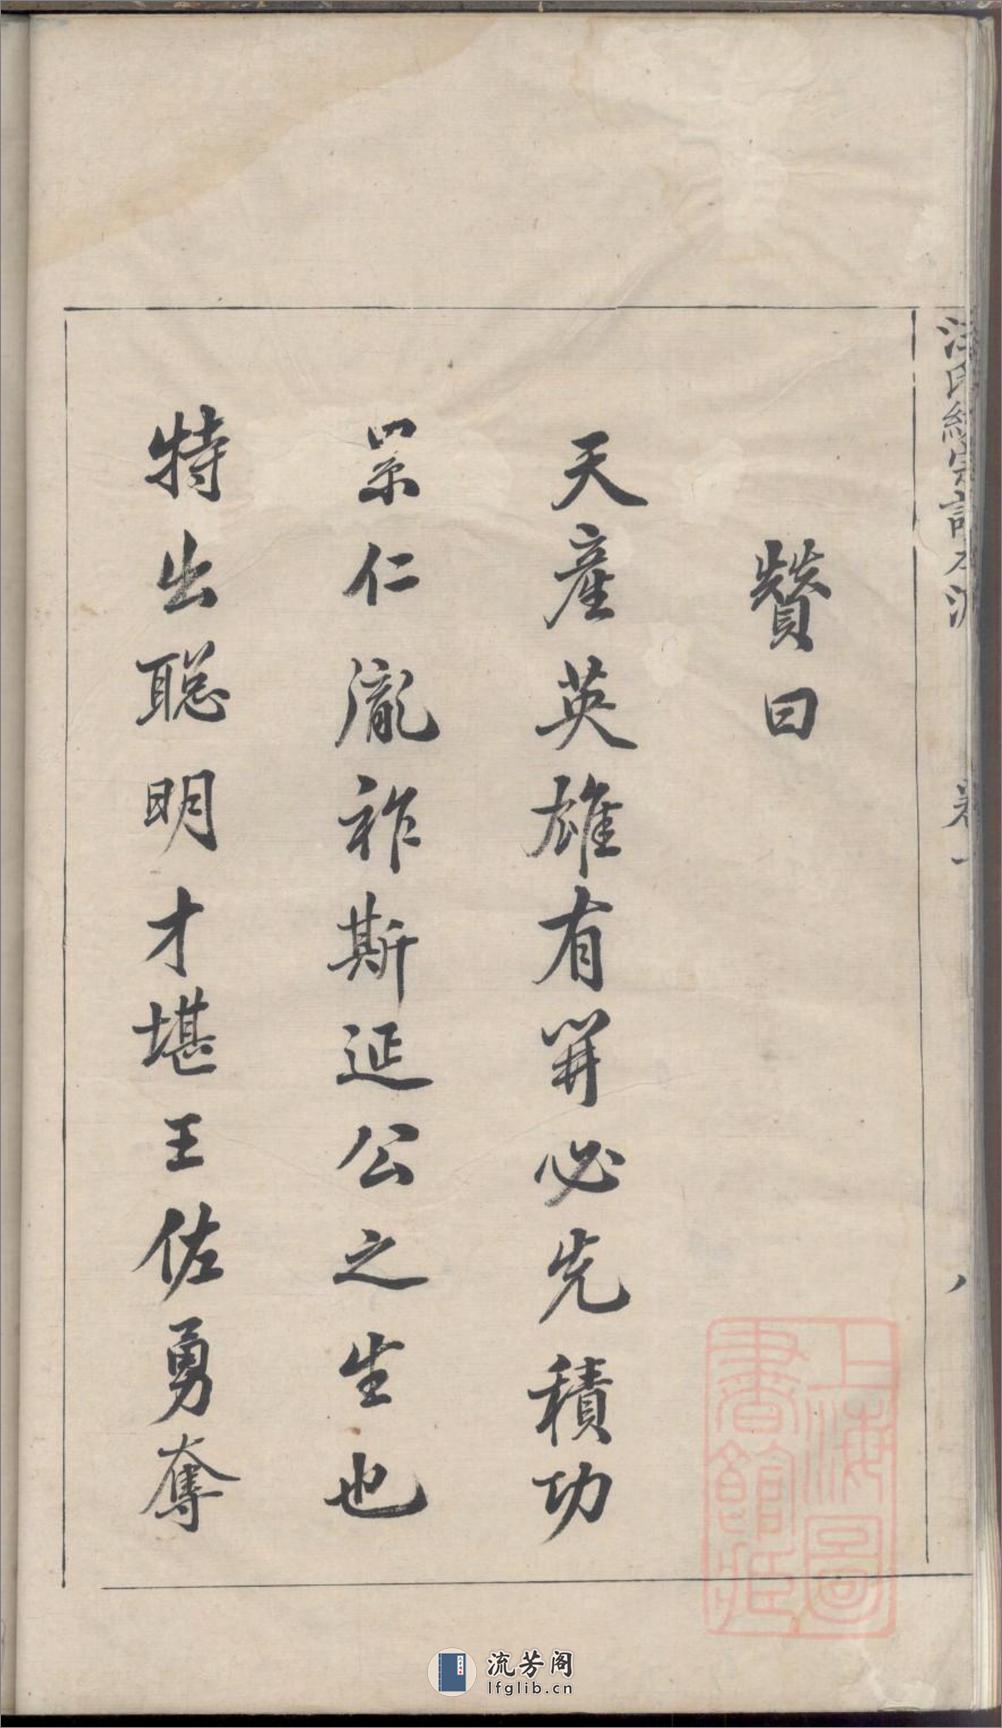 汪氏統宗譜
卷一
八
贊曰
天產英雄有開必先積功
累仁胤祚斯延公之生也
特出聪明才堪王佐勇奪
上海圖
書館藏
流芳阁
lfglib.cn